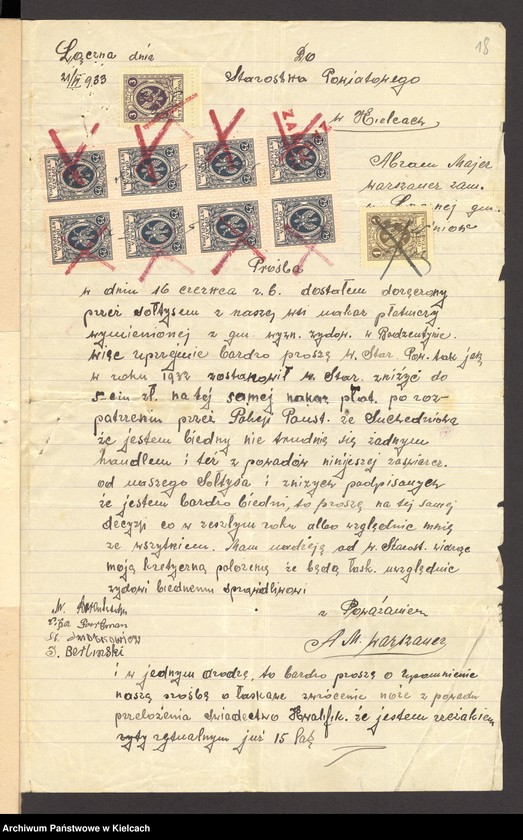 18
Łączna dnia
Do
21/VI 933
Starostwa Powiatowego
w Kielcach
Abram Majer
warszauer zam.
w Łącznej gm.
Prośba
w dniu 16 czerwca r. b. dostałem doręczony
przez sołtysem z naszej wsi nakaz płatniczy
wymienionej z gm. wyzn. żydow. w Bodzentynie.
więc uprzejmie bardzo proszę w. Star. Pow. tak jak
w roku 1932 zostanowił w. Star. zniżyć do
5ciu zł. na tej samej nakaz płat. po roz-
patrzeniu przez Policji Panst. ze Suchedniowa
że jestem biedny nie trudnię się żadnym
handlem i też z powodów niniejszej zaświercz.
od naszego Sołtysa i zniżych podpisanych
że jestem bardzo biedni, to proszę na tej samej
decyzji co w zeszłym roku albo względnie mnię
ze wszystkiem. Mam nadzieją od w. Starost. widząc
moją krytyczną położenie że będą łask. uwzględnic
żydowi biednemu sprawidliwoi
z Poważaniem
A M. warszauer
J. Berliński
i w jednym drodze, to bardzo proszę o
naszą prośbę o łaskawe zwrócenie
przełożenia świadectwo Kwalifik. że jestem rzeżakiem
rytualnym już 15 lat
Archiwum Państwowe w Kielcach